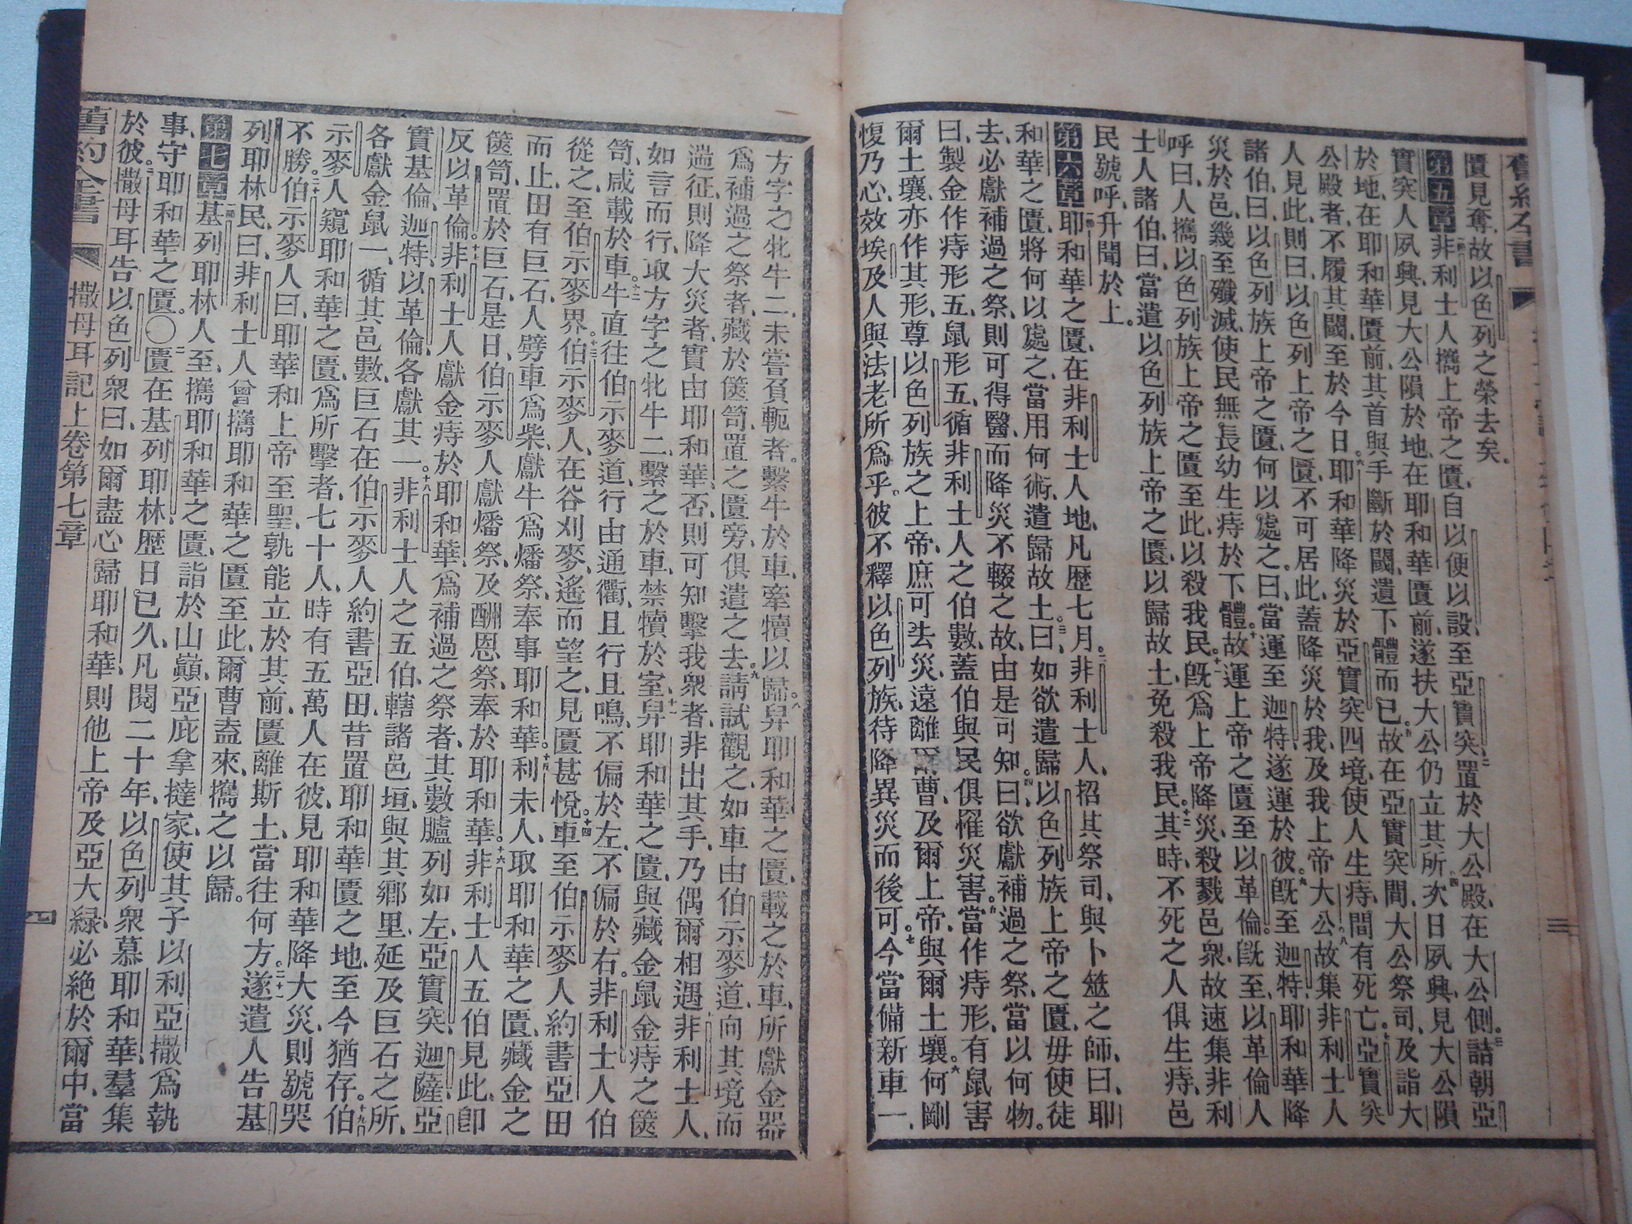 舊約全書
匱見奪、故以色列之榮去矣、
第五章非利士人攜上帝之匱、自以便以設至亞實突、置於大公殿、在大公側、詰朝亞
實突人夙興、見大公隕於地、在耶和華匱前、遂扶大公仍立其所、次日夙興、見大公隕
於地、在耶和華匱前、其首與手斷於閾、遺下體而已、故在亞實突間、大公祭司、及詣大
公殿者、不履其閾、至於今日、耶和華降災於亞實突四境、使人生痔、間有死亡、亞實突
人見此、則曰、以色列上帝之匱、不可居此、蓋降災於我、及我上帝大公、故集非利士人
諸伯曰、以色列族上帝之匱、何以處之、曰、當運至迦特、遂運於彼、旣至迦特、耶和華降
災於邑、幾至殲滅、使民無長幼生痔於下體、故運上帝之匱至以革倫、旣至、以革倫人
呼曰、人攜以色列族上帝之匱至此、以殺我民、旣爲上帝降災、殺戮邑衆、故速集非利
士人諸伯曰、當遣以色列族上帝之匱、以歸故土、免殺我民、其時、不死之人俱生痔、邑
民號呼、升聞於上。
第六章耶和華之匱、在非利士人地、凡歷七月。非利士人、招其祭司、與卜筮之師、曰、耶
和華之匱、將何以處之、當用何術、遣歸故土。曰、如欲遣歸以色列族上帝之匱、毋使徒
去、必獻補過之祭、則可得醫、而降災不輟之故、由是可知。曰、欲獻補過之祭、當以何物。
曰、製金作痔形五、鼠形五、循非利士人之伯數、蓋伯與民、俱罹災害、當作痔形、有鼠害
爾土壤、亦作其形、尊以色列族之上帝、庶可去災、遠離爾曹、及爾上帝、與爾土壤、何剛
愎乃心、效埃及人與法老所爲乎、彼不釋以色列族、待降異災而後可、今當備新車一、
方字之牝牛二、未嘗負軛者、繫牛於車、牽犢以歸、舁耶和華之匱、載之於車、所獻金器
爲補過之祭者、藏於篋笥、置之匱旁、俱遣之去、請試觀之、如車由伯示麥道、向其境而
遄征、則降大災者、實由耶和華、否則可知擊我衆者、非出其手、乃偶爾相遇、非利士人、
如言而行、取方字之牝牛二、繫之於車、禁犢於室、舁耶和華之匱、與藏金鼠金痔之篋
笥、咸載於車、牛直往伯示麥道、行由通衢、且行且鳴、不偏於左、不偏於右、非利士人伯
從之、至伯示麥界、伯示麥人、在谷刈麥、遙而望之、見匱甚悅、車至伯示麥人約書亞田
而止、田有巨石、人劈車爲柴、獻牛爲燔祭、奉事耶和華、利未人、取耶和華之匱、藏金之
篋笥、置於巨石、是日、伯示麥人獻燔祭、及酬恩祭、奉於耶和華、非利士人五伯見此、卽
反以革倫、非利士人獻金痔於耶和華、爲補過之祭者、其數臚列如左、亞實突、迦薩、亞
實基倫、迦特、以革倫、各獻其一、非利士人之五伯、轄諸邑垣、與其鄉里、延及巨石之所、
各獻金鼠一、循其邑數、巨石在伯示麥人約書亞田、昔置耶和華匱之地、至今猶存、伯
示麥人窺耶和華之匱、爲所擊者、七十人、時有五萬人在彼、見耶和華降大災、則號哭
不勝、伯示麥人曰、耶華和上帝至聖、孰能立於其前、匱離斯土、當往何方、遂遣人告基
列耶林民曰、非利士人曾攜耶和華之匱至此、爾曹盍來、攜之以歸。
第七章基列耶林人至、攜耶和華之匱、詣於山巔、亞庇拿撻家、使其子以利亞撒、爲執
事、守耶和華之匱。〇匱在基列耶林、歷日已久、凡閱二十年、以色列衆慕耶和華、羣集
於彼、撒母耳告以色列衆曰、如爾盡心歸耶和華、則他上帝及亞大綠、必絶於爾中、當
舊約全書 撒母耳記上卷第七章 四